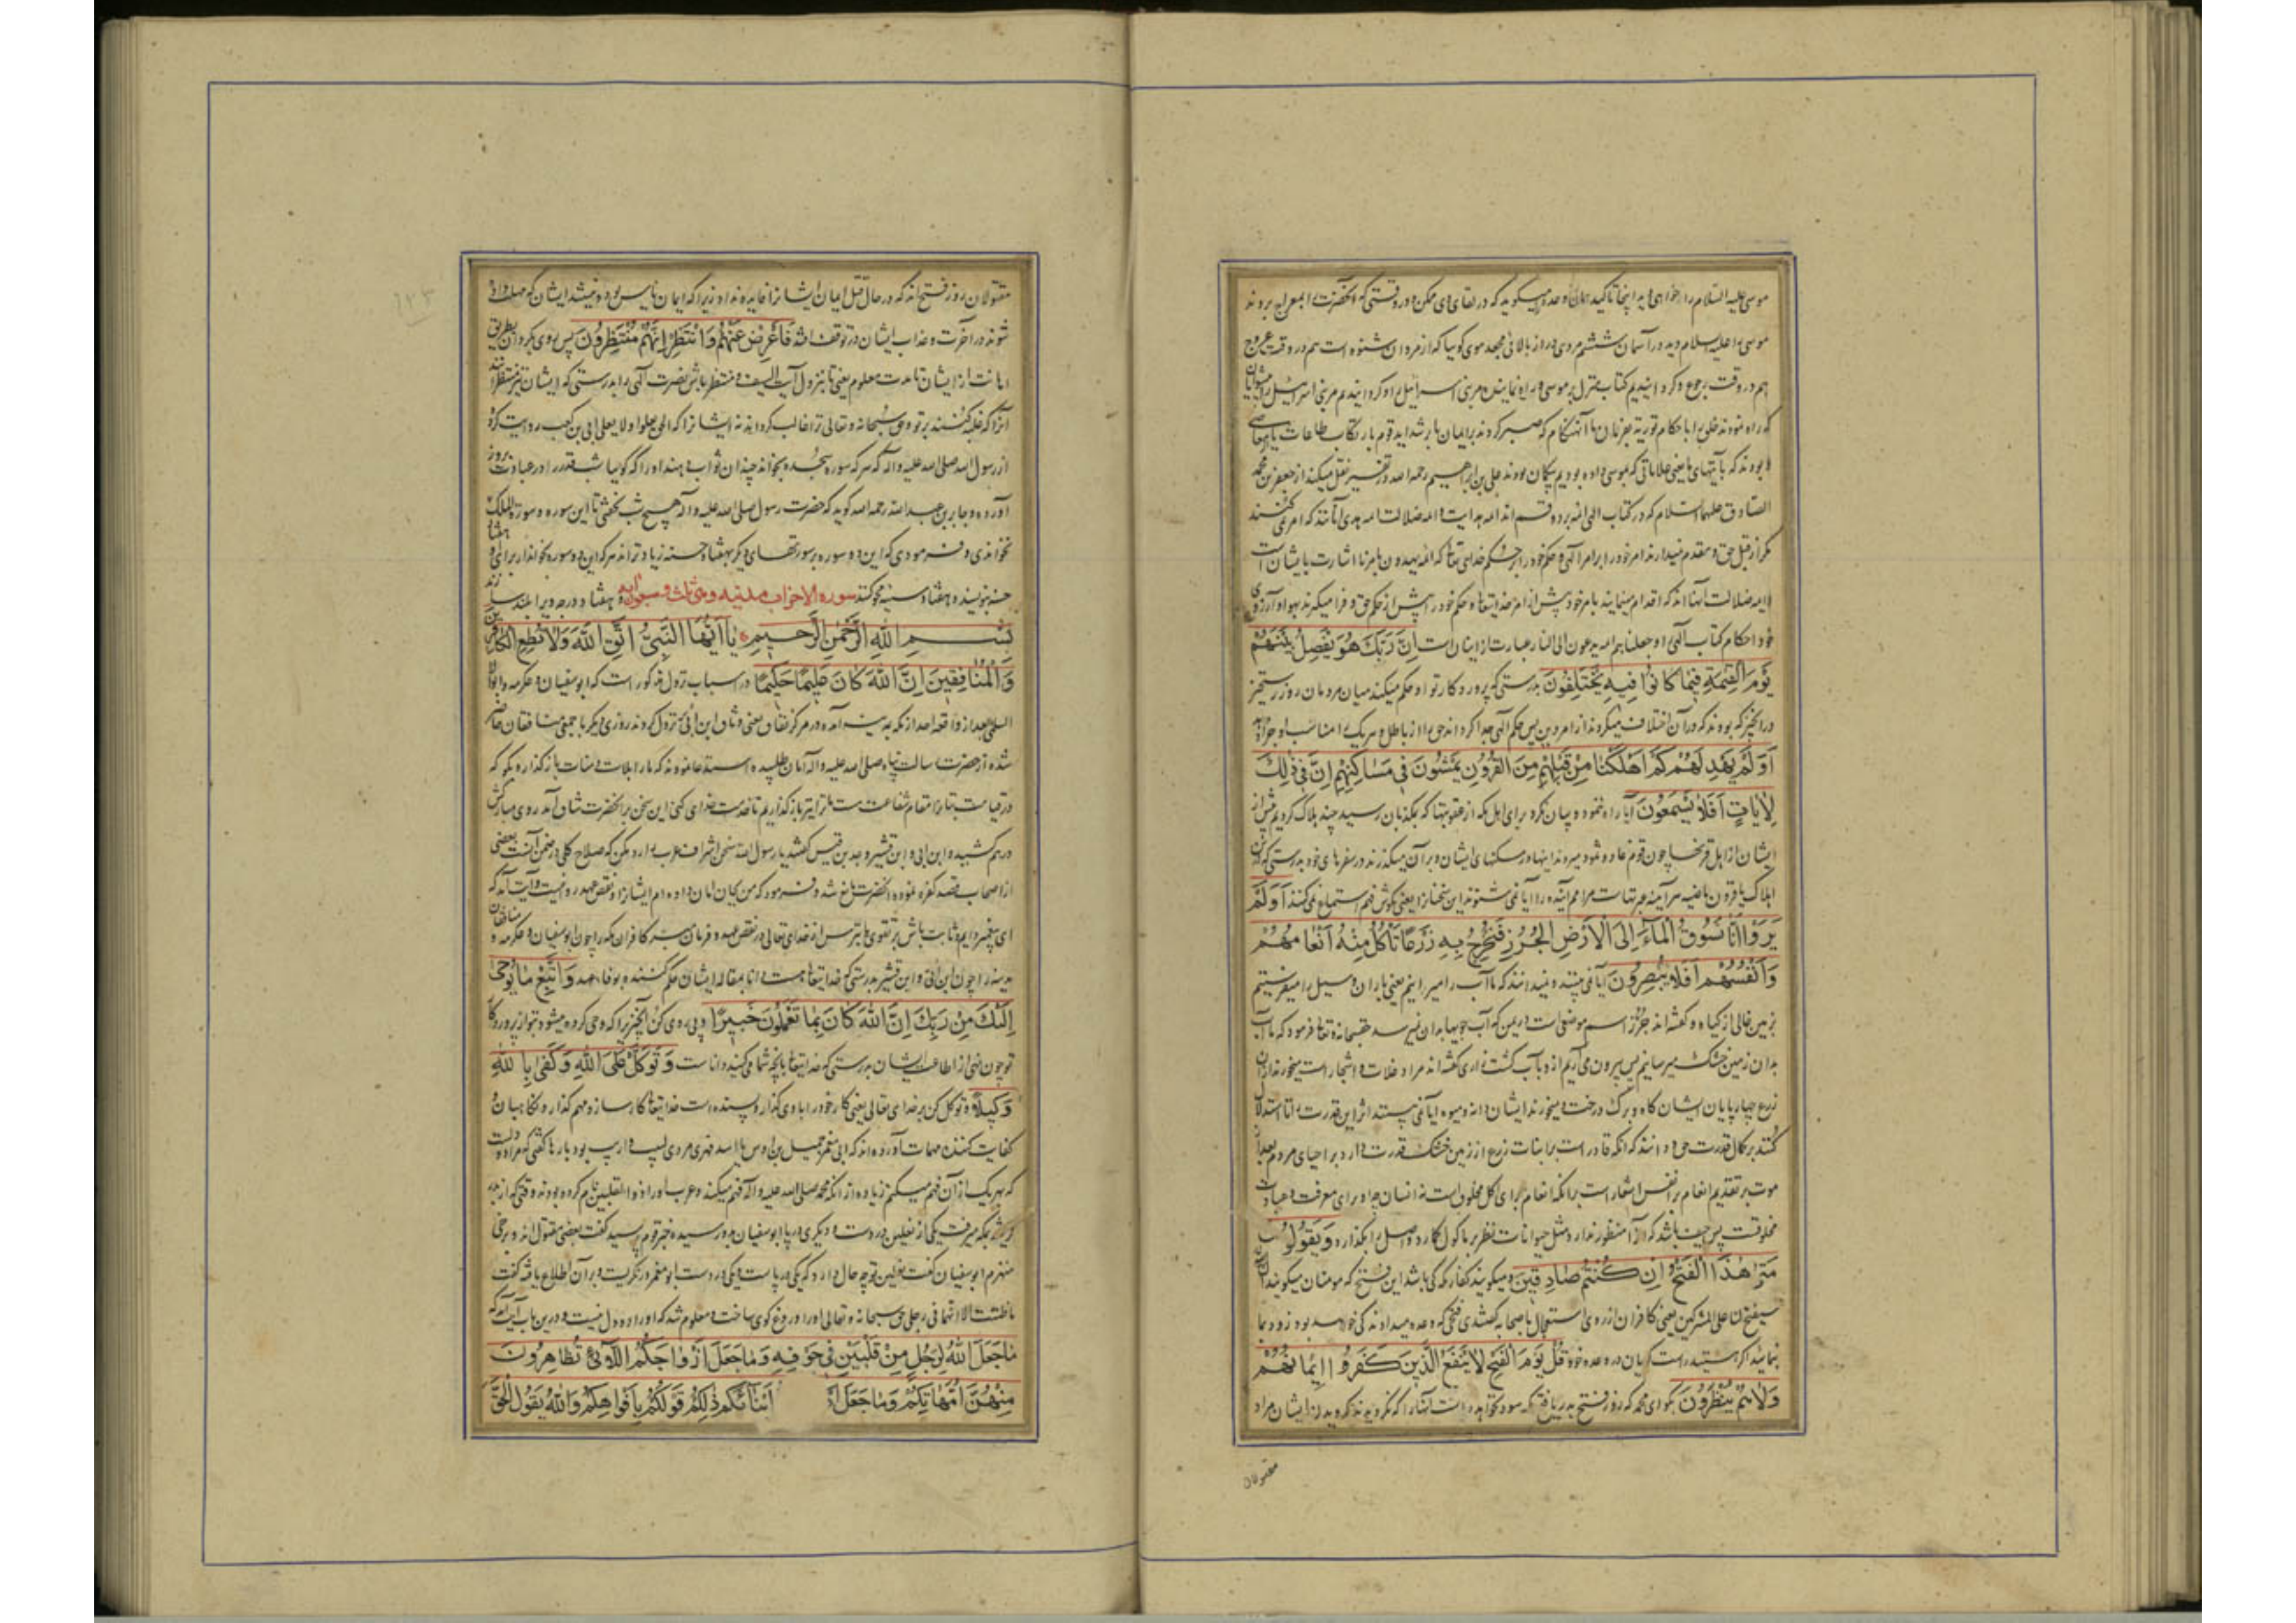 موسی علیه السلام را
موسی را علیه السلام دید در آسمان ششم مردی دراز بالائی مجعد موی کوییا که از مردان شنوه است هم در وقت عروج
هم در وقت رجوع و کردانیدیم کتاب منزل بر موسی را راه نماینده مر بنی اسرائیل را و کردانیدیم مر بنی اسرائیل پیشوایان
که راه نمودند خلق را باحکام توریة بفرمان ما آنهنکام که صبر کردند
بودند که بآیتهای ما یعنی علاماتی که بموسی داده بودیم بیکمان بودند علی بن ابراهیم رحمه الله در تفسیر نقل میکند از جعفر بن محمد
الصادق علیهما السلام که در کتاب الهی ائمه بر دو قسم اند ائمه هدایت و ائمه ضلالت ائمه هدی آنانند که امر نمی کنند
مکر از قبل حق و مقدم میدارند امر خود را بر امر الهی و حکم خود را بر حکم خدای تعا که ائمة یهدون بامرنا اشارت بایشانست
و ائمه ضلالت آنها اند که اقدام مینمایند بامر خود پیش از امر خدایتعا و حکم خود را پیش از حکم حق و فرا میکیرند بهوا و آرزوی
خود احکام کتاب الهی را و جعلناهم ائمه یدعون الی النار عبارت از اینان است اِنَّ رَبَّكَ هُوَ يَفْصِلُ بَيْنَهُمْ
يَوْمَ الْقِيمَةِ فِيمَا كَانُوا فِيهِ يَخْتَلِفُونَ بدرستی که پروردکار تو او حکم میکند میان مردمان روز رستخیز
در آنچیز که بودند که در آن اختلاف میکردند از امر دین پس حکم الهی جدا کرداند حق را از باطل و هر یک را مناسب او جزا دهد
اَوَلَمْ يَهْدِ لَهُمْ كَمْ اَهْلَكْنَا مِنْ قَبْلِهِمْ مِنَ الْقُرُونِ يَمْشُونَ فِي مَسَاكِنِهِمْ اِنَّ فِي ذٰلِكَ
لَاٰيَاتٍ اَفَلَا يَسْمَعُونَ آیا راه ننمود و بیان نکرد برای اهل مکه از عقوبتها که بمکذبان رسید چند هلاک کردیم پیش از
ایشان از اهل قرنها چون قوم عاد و ثمود میروند اینها در مسکنهای ایشان و بر آن میکذرند در سفرهای خود بدرستی که در
اهلاک یا قرون ماضیه هر آینه عبرتهاست مر امم آینده را آیا نمی شنوند این سخنان را یعنی بکوش فهم استماع نمی کنند اَوَلَمْ
يَرَوْا اَنَّا نَسُوقُ الْمَاءَ اِلَى الْاَرْضِ الْجُرُزِ فَنُخْرِجُ بِهِ زَرْعًا تَأْكُلُ مِنْهُ اَنْعَامُهُمْ
وَاَنْفُسُهُمْ اَفَلَا يُبْصِرُونَ آیا نمی بینند و نمیدانند که ما آب را میرانیم یعنی باران و سیل را میفرستیم
بزمین خالی از کیاه و کفته اند جرز اسم موضعی است در یمن که آب جویها بدان نمیرسد حقسبحانه و تعا فرمود که ما آب
بدان زمین خشک میرسانیم پس بیرون می آریم از و بآب کشت زاری کفته اند مراد غلات و اشجار است میخورند از آن
زرع چهارپایان ایشان کاه و برک درخت و میخورند ایشان دانه و میوه آیا نمی بینند اثر این قدرت را تا استدلال
کنند بر کمال قدرت حق و دانند که آنکه قادر است بر انبات زرع از زمین خشک قدرت دارد بر احیای مردم بعد از
موت بر تقدیم انعام بر انفس اشعار است بر آنکه انعام برای اکل مخلوق است نه انسان چه او برای معرفت و عبادت
مخلوقست پس حیف باشد که آنرا منظور ندارد و مثل حیوانات نظر بر ماکول کمارد و اصل را بکذارد وَيَقُولُونَ
مَتَى هٰذَا الْفَتْحُ اِنْ كُنْتُمْ صَادِقِينَ و میکویند کفار مکه کی باشد این فتح که مومنان میکویند
سیفتح لنا علی المشرکین یعنی کافران از روی استعجال با صحابه کفتندی فتحی که وعده میدادند کی خواهد بود زود بما
نمایید اکر هستید راست کویان در وعده خود قُلْ يَوْمَ الْفَتْحِ لَا يَنْفَعُ الَّذِينَ كَفَرُوا اِيمَانُهُمْ
وَلَا هُمْ يُنْظَرُونَ بکو ای محمد که روز فتح بدر یا فتح مکه سود نخواهد داشت آنان را که نکرویدند کرویدن ایشان مراد
مقتولان
مقتولان روز فتح اند که در حال قتل ایمان ایشانرا فایده نداد زیرا که ایمان یأس بود و نیستند ایشان که مهلت داده
شوند در آخرت و عذاب ایشان در توقف افتد فَاَعْرِضْ عَنْهُمْ وَانْتَظِرْ اِنَّهُمْ مُنْتَظِرُونَ پس روی بکردان بطریق
اهانت از ایشان تا مدت معلوم یعنی تا بنزول آیت السیف و منتظر باش نصرت الهی را بدرستی که ایشان نیز منتظرانند
آنرا که غلبه کنند بر تو و حق سبحانه و تعالی ترا غالب کرداند نه ایشانرا که الحق یعلوا ولا یعلی ابی بن کعب روایت کرده
از رسول الله صلی الله علیه واله که هر که سوره سجده بخواند چندان ثواب دهند او را که کوییا شب قدر را در عبادت بروز
آورده و جابر بن عبدالله رحمه الله کوید که حضرت رسول صلی الله علیه واله هیچ شب نخفتی تا این سوره و سورة الملک
نخواندی و فرمودی که این دو سوره بر سورتهای دیکر بهفتاد حسنه زیادتراند هر که این دو سوره بخواند از برای او هفتاد
حسنه بنویسند و هفتاد سیئه محو کنند سوره الاحزاب مدنیه وهی ثلث وسبعون آیه و هفتاد درجه ویرا بلند سازند
بِسْمِ اللهِ الرَّحْمٰنِ الرَّحِيمِ يَا اَيُّهَا النَّبِيُّ اتَّقِ اللهَ وَلَا تُطِعِ الْكَافِرِينَ
وَالْمُنَافِقِينَ اِنَّ اللهَ كَانَ عَلِيمًا حَكِيمًا در اسباب نزول مذکور است که ابو سفیان و عکرمه و ابو الاعور
السلمی بعد از واقعه احد از مکه بمدینه آمده در مرکز نفاق یعنی وثاق ابن ابی نزول کردند روزی دیکر با جمعی منافقان حاضر
شده از حضرت رسالت پناه صلی الله علیه واله امان طلبیده استدعا نمودند که ما را بلات و منات بازکذار و بکو که
در قیامت بتانرا مقام شفاعت هست ما ترا نیز بازکذاریم تا خدمت خدای کنی این سخن بر آنحضرت شاق آمد روی مبارک
درهم کشیده و ابن ابی و ابن قشیر و جد بن قیس کفتند یا رسول الله سخن اشراف عرب را رد مکن که صلاح کلی در ضمن آنست بعضی
از اصحاب قصد کفره نموده آنحضرت مانع شد و فرمود که من ایشان امان داده ام ایشانرا و نقض عهد روا نیست و آیت آمد که
ای پیغمبر دایم و ثابت باش بر تقوی یا بترس از خدای تعالی در نقض عهد و فرمان مبر کافران مکه را چون ابو سفیان و عکرمه و منافقان
مدینه را چون ابن ابی و ابن قشیر بدرستی که خدایتعا هست دانا بمقاله ایشان حکم کننده بوفا عهد وَاتَّبِعْ مَا يُوحَى
اِلَيْكَ مِنْ رَبِّكَ اِنَّ اللهَ كَانَ بِمَا تَعْمَلُونَ خَبِيرًا و پیروی کن آنچیز را که وحی کرده میشود بتو از پروردکار
تو چون نهی از اطاعت ایشان بدرستی که خدایتعا بآنچه شما می کنید داناست وَتَوَكَّلْ عَلَى اللهِ وَكَفَى بِاللهِ
وَكِيلًا و توکل کن بر خدای تعالی یعنی کار خود را با وی کذار و بسنده است خدایتعا کارساز و مهم کذار و نکاهبان و
کفایت کننده مهمات آورده اند که ابی معمر جمیل بن اوس یا اسد فهری مردی لبیب و اریب بود بارها کفتی که مرا دو دلست
که بهر یک از آن فهم میکنم زیاده از آنکه محمد صلی الله علیه واله فهم میکند و عرب او را ذو القلبین نام کرده بودند وقتی که از بدر
کریخته بمکه میرفت یکی از نعلین در دست و دیکری در پا ابو سفیان بدو رسیده خبر قوم پرسید کفت بعضی مقتول اند و برخی
منهزم ابو سفیان کفت نعلین تو چه حال دارد که یکی در پاست و یکی در دست ابو معمر در نکریست و بر آن اطلاع یافته کفت
ما ظننت الا انهما فی رجلی حق سبحانه و تعالی او را دروغ کوی ساخت و معلوم شد که او را دو دل نیست و درین باب آیت آمد که
مَا جَعَلَ اللهُ لِرَجُلٍ مِنْ قَلْبَيْنِ فِي جَوْفِهِ وَمَا جَعَلَ اَزْوَاجَكُمُ اللَّائِي تُظَاهِرُونَ
مِنْهُنَّ اُمَّهَاتِكُمْ وَمَا جَعَلَ اَبْنَائَكُمْ ذٰلِكُمْ قَوْلُكُمْ بِاَفْوَاهِكُمْ وَاللهُ يَقُولُ الْحَقَّ